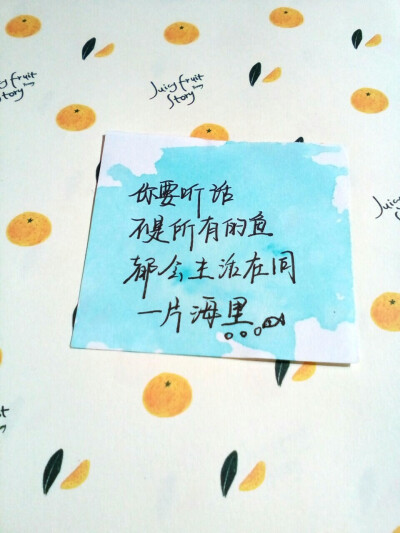 Juicy fruit
Story
你要听话
不是所有的鱼
都会生活在同
一片海里